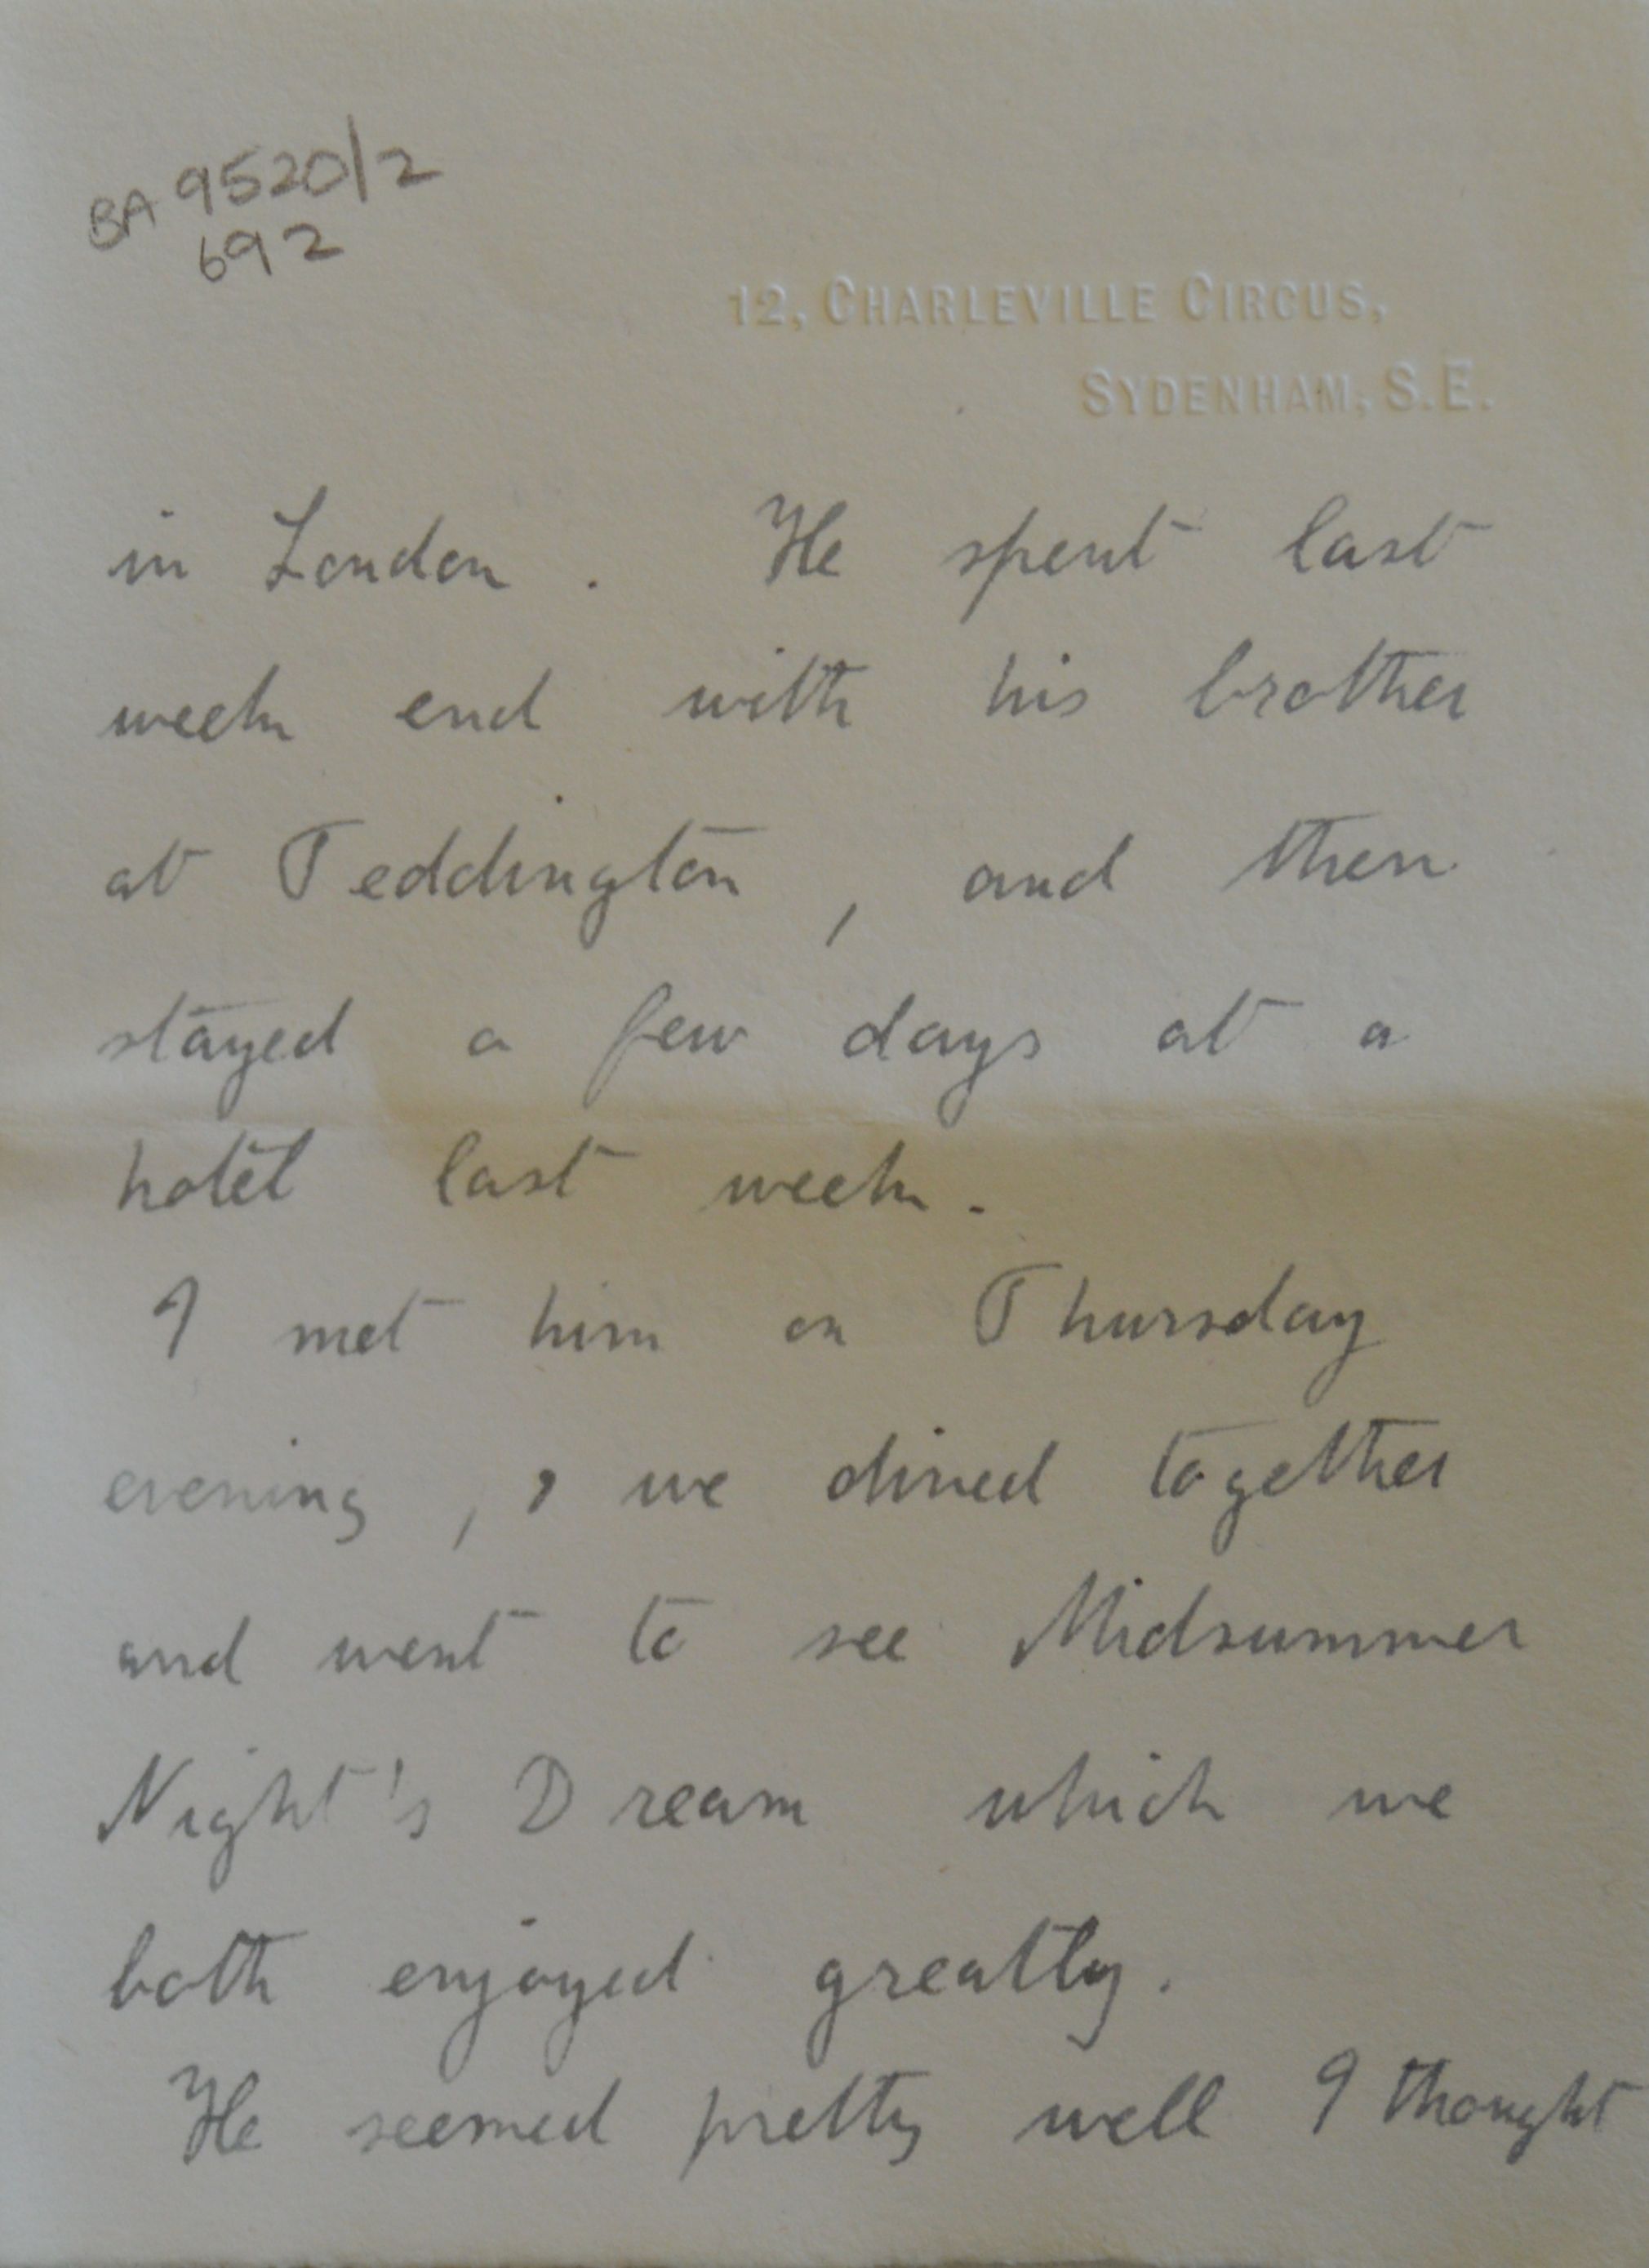 BA 9520/2
692
12, CHARLEVILLE CIRCUS,
SYDENHAM, S.E.
in London. He spent last
week end with his brother
at Teddington, and then
stayed a few days at a
hotel last week.
I met him on Thursday
evening, & we dined together
and went to see Midsummer
Night's Dream which we
both enjoyed greatly.
He seemed pretty well I thought